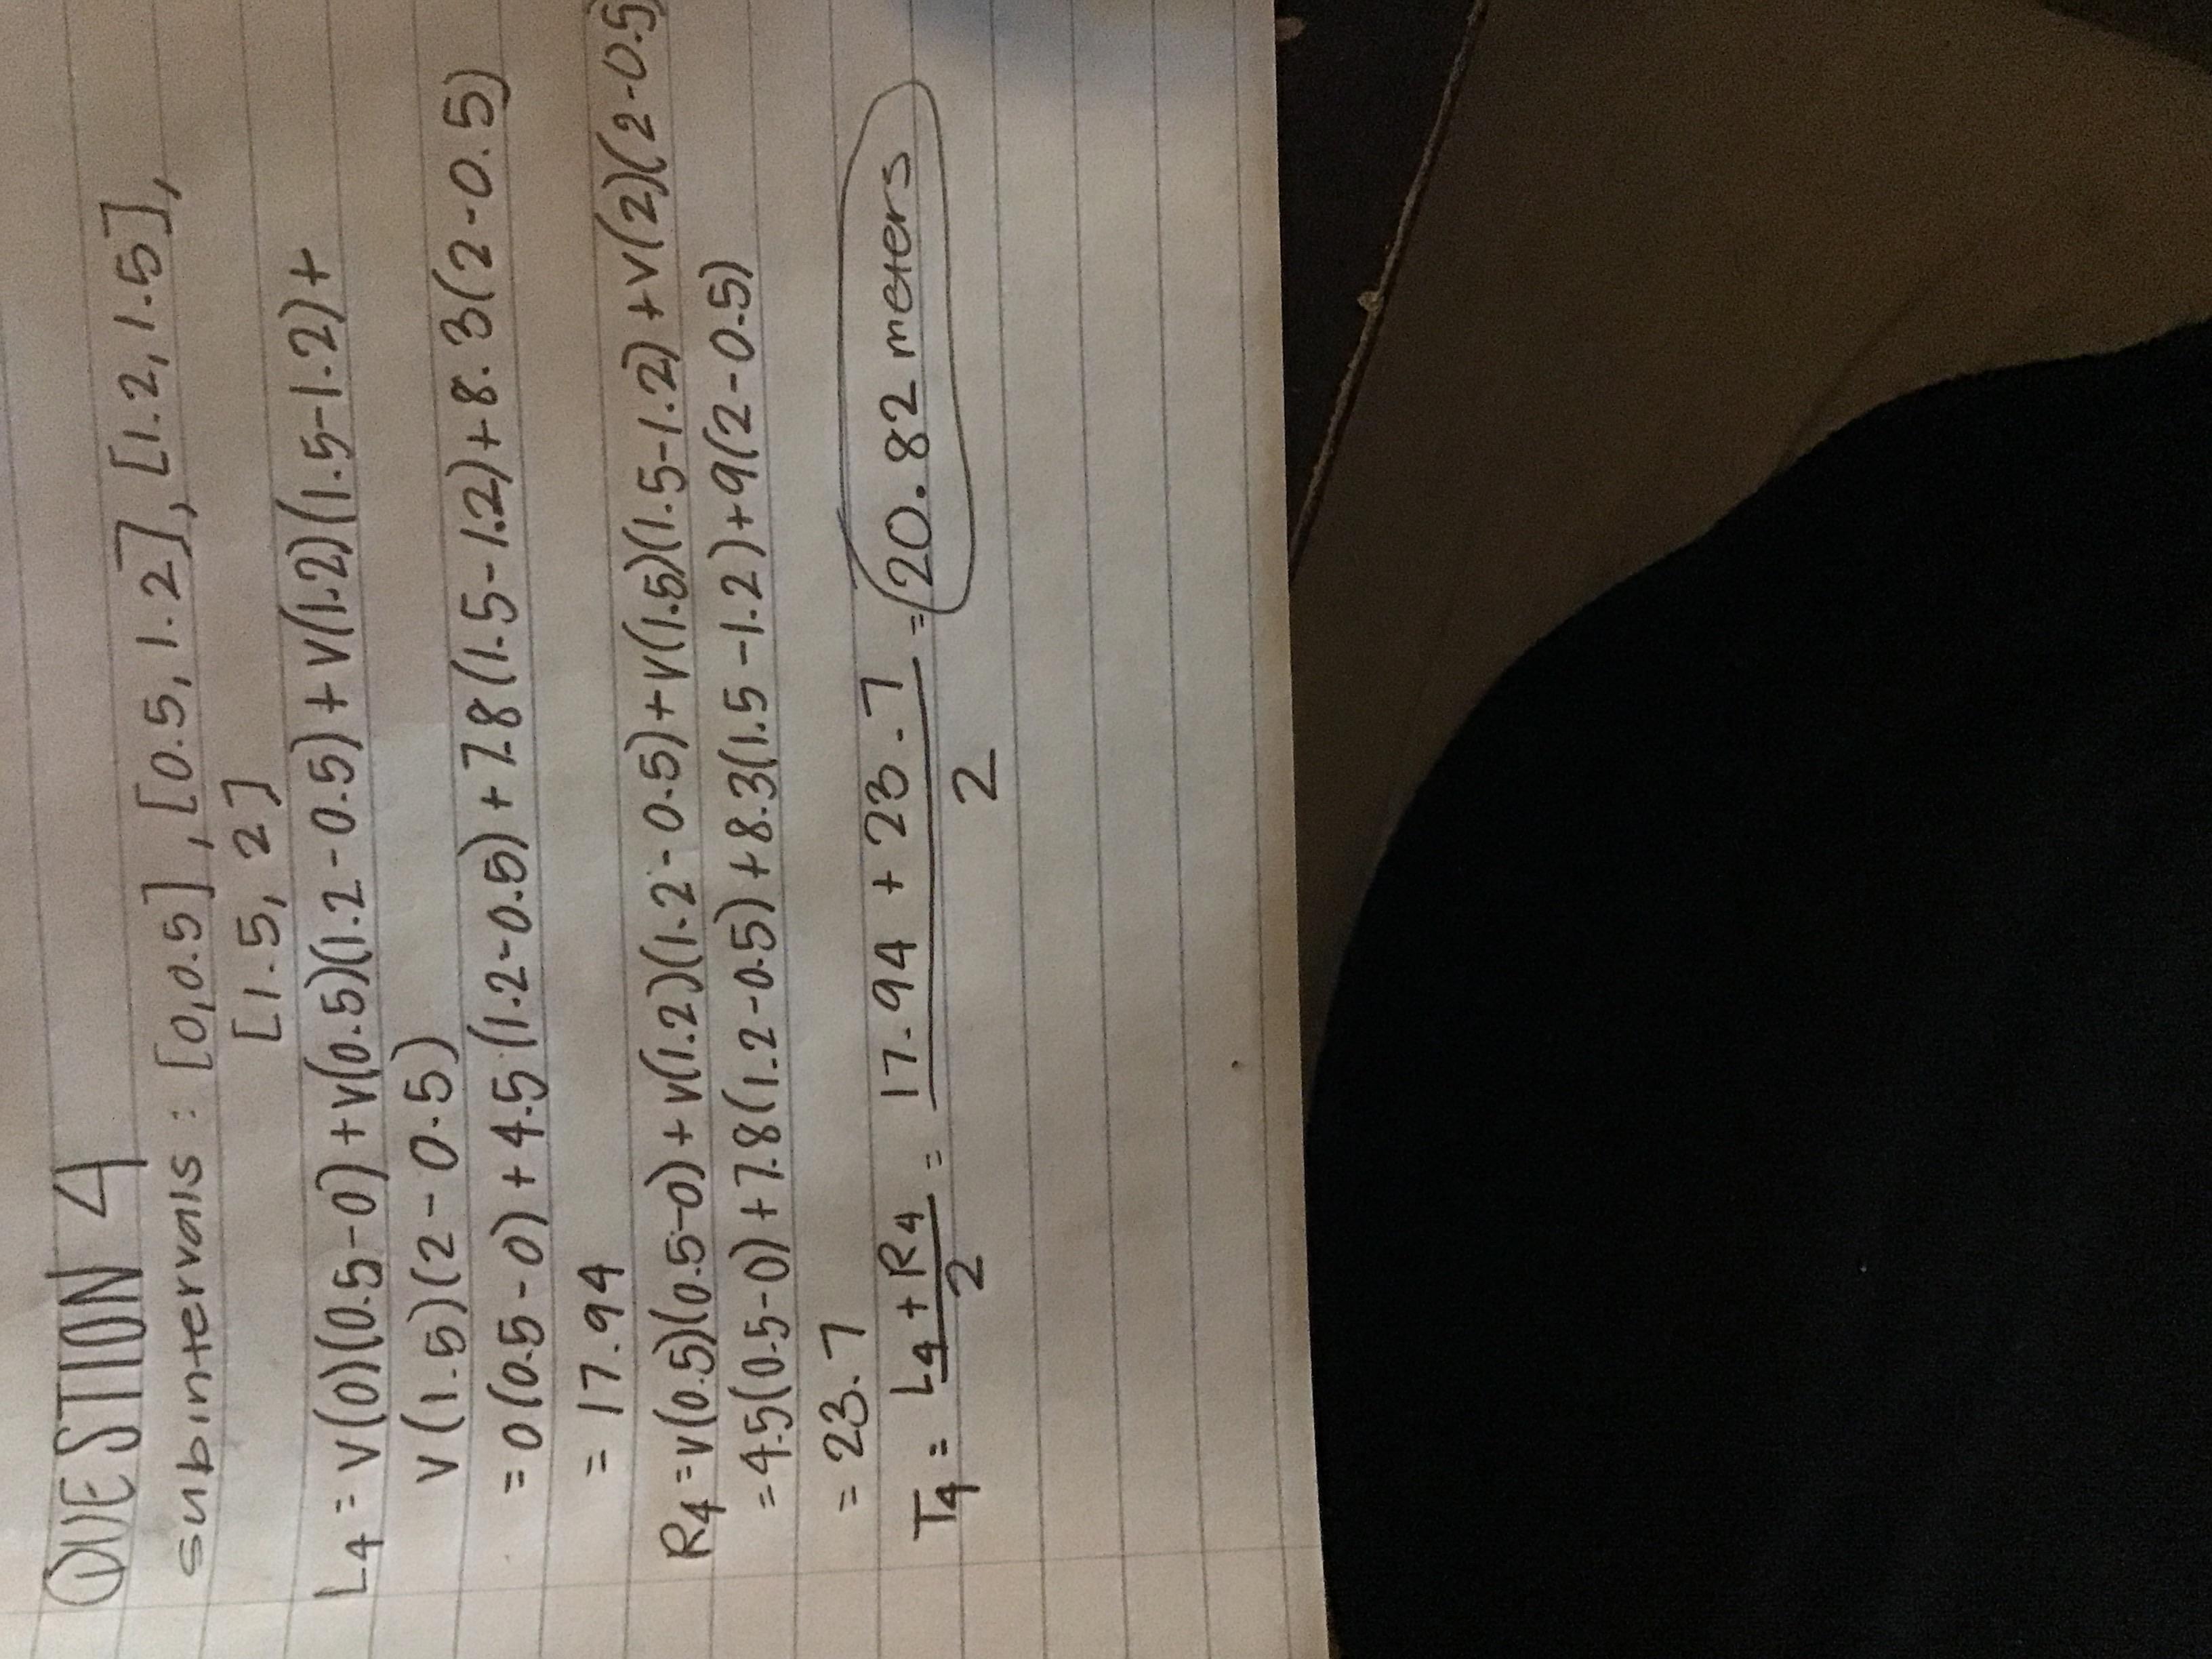 QUESTION 4
subintervals : [0,0.5] , [0.5, 1.2], [1.2, 1.5],
[1.5, 2]
L4 = v(0)(0.5-0) + v(0.5)(1.2-0.5) + v(1.2)(1.5-1.2)+
v(1.5)(2-0.5)
= 0(0.5-0) + 4.5(1.2-0.5) + 7.8(1.5-1.2)+8.3(2-0.5)
= 17.94
R4 = v(0.5)(0.5-0) + v(1.2)(1.2-0.5)+v(1.5)(1.5-1.2)+v(2)(2-0.5)
= 4.5(0.5-0) + 7.8(1.2-0.5) + 8.3(1.5-1.2)+9(2-0.5)
= 23.7
T4 = L4 + R4 / 2 = 17.94 + 23.7 / 2 = 20.82 meters